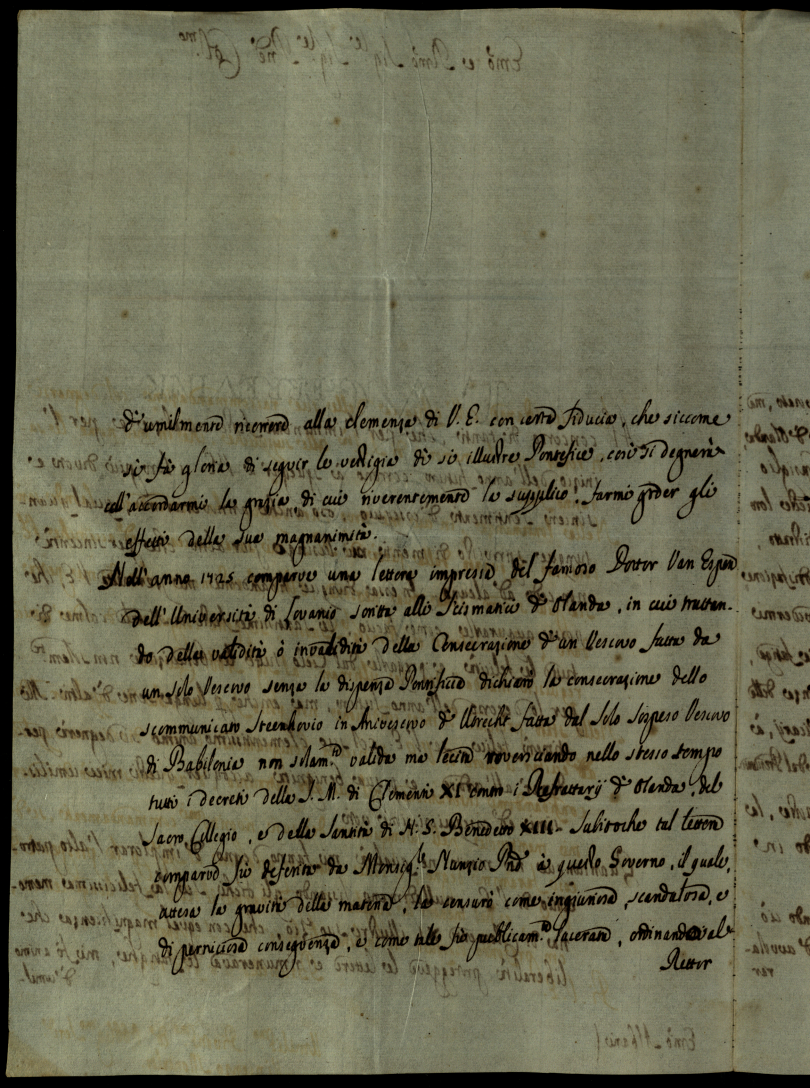 d'umilmente ricorrere alla clemenza di V. E. con certa fiducia, che siccome
si fà gloria di seguir le vestigia di sì illustre Pontefice, così si degnerà
coll'accordarmi la grazia di cui riverentemente la supplico, farmi goder gli
effetti della sua magnanimità.
Nell'anno 1725 comparve una lettera impressa del famoso Dottor Van Espen
dell'Università di Lovanio scritta alli Scismatici d'Olanda, in cui trattan-
do della validità ò invalidità della Consecrazione d'un Vescovo fatta da
un solo Vescovo senza la dispensa Pontificia dichiarò la consecrazione dello
scommunicato Steenhovio in Arcivescovo d'Utrecht fatta dal solo sospeso Vescovo
di Babilonia non solam.te valida ma lecita rovesciando nello stesso tempo
tutti i decreti della S. M. di Clemente XI contro i Refrattarij d'Olanda, del
Sacro Collegio, e della Santità di N. S. Benedetto XIII. Subitoche tal lettera
comparve fù deferita da Monsig.r Nunzio à questo Governo, il quale,
attesa la gravità della materia, la censurò come ingiuriosa, scandalosa, e
di perniciosa conseguenza, e come tale fù publicam.te lacerata, ordinando al
Rettor